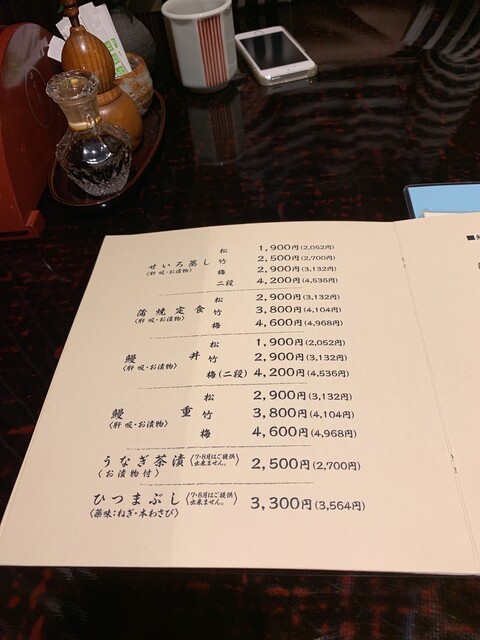 せいろ蒸し
(肝吸・お漬物)
松 1,900円(2,052円)
竹 2,500円(2,700円)
梅 2,900円(3,132円)
二段 4,200円(4,536円)
蒲焼定食
(肝吸・お漬物)
松 2,900円(3,132円)
竹 3,800円(4,104円)
梅 4,600円(4,968円)
鰻丼
(肝吸・お漬物)
松 1,900円(2,052円)
竹 2,900円(3,132円)
梅(二段) 4,200円(4,536円)
鰻重
(肝吸・お漬物)
松 2,900円(3,132円)
竹 3,800円(4,104円)
梅 4,600円(4,968円)
うなぎ茶漬〈7・8月はご提供出来ません。〉 2,500円(2,700円)
〈お漬物付〉
ひつまぶし〈7・8月はご提供出来ません。〉 3,300円(3,564円)
〈薬味:ねぎ・本わさび〉